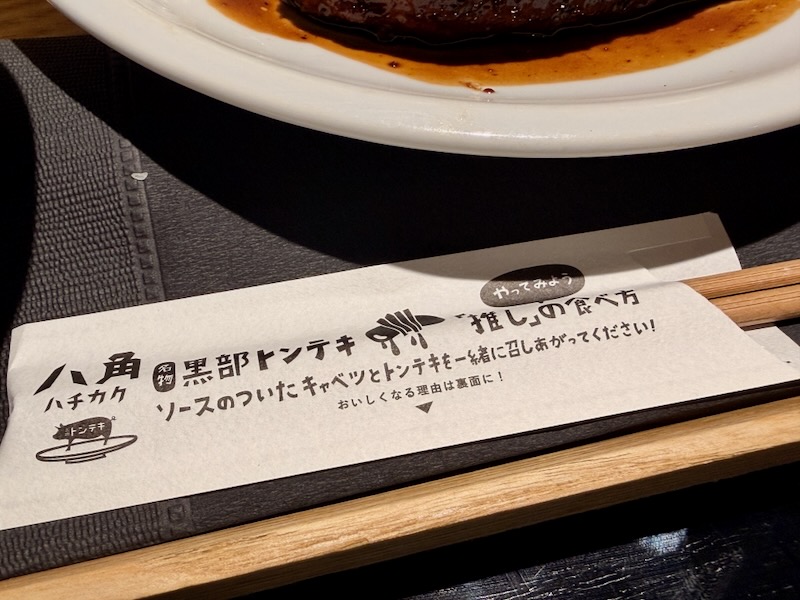 八角
ハチカク
トンテキ
やってみよう
名物 黒部トンテキ 「推し」の食べ方
ソースのついたキャベツとトンテキを一緒に召しあがってください!
おいしくなる理由は裏面に!